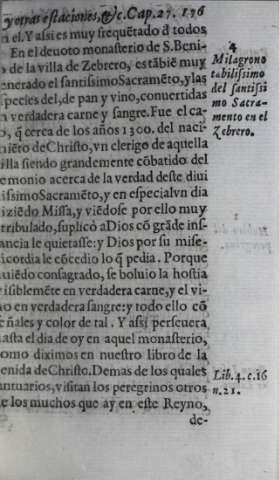 y otras estaciones, &c. Cap. 27. 196
n el. Y assi es muy frequẽtado đ todos
En el deuoto monasterio de S. Beni-
de la villa de Zebrero, estâbiẽ muy
enerado el santissimo Sacramẽto, y las
species del, de pan y vino, conuertidas
n verdadera carne y sangre. Fue el ca-
o, q̃ cerca de los años 1300. del naci-
niẽto de Christo, vn clerigo de aquella
villa siendo grandemente cõbatido del
emonio acerca de la verdad deste diui
issimo Sacramẽto, y en especial vn dia
iziẽdo Missa, y viẽdose por ello muy
tribulado, suplicò a Dios cõ grãde ins-
ancia le quietasse: y Dios por su mise-
icordia le cõcedio lo q̃ pedia. Porque
uiẽdo consagrado, se boluio la hostia
isiblemẽte en verdadera carne, y el vi-
no en verdadera sangre: y todo ello cõ
eñales y color de tal. Y assi perseuera
hasta el dia de oy en aquel monasterio,
omo diximos en nuestro libro de la
enida de Christo. Demas de los quales
antuarios, visitan los peregrinos otros
e los muchos que ay en este Reyno,
de-
4
Milagro no
tabilissimo
del santissi
mo Sacra-
mento en el
Zebrero.
Lib. 4. c. 16
n. 21.